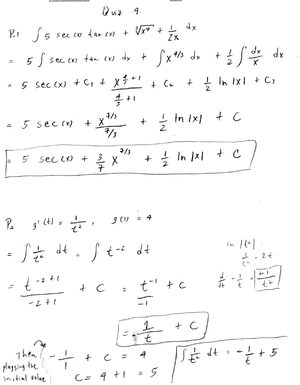 Quiz 9.
P.1 ∫ 5 sec(x) tan(x) + ∛x⁴ + 1/2x dx
= 5 ∫ sec(x) tan(x) dx + ∫ x^4/3 dx + 1/2 ∫ dx/x dx
= 5 sec(x) + C₁ + x^(4/3 + 1) / (4/3 + 1) + C₂ + 1/2 ln|x| + C₃
= 5 sec(x) + x^7/3 / 7/3 + 1/2 ln|x| + C
= 5 sec(x) + 3/7 x^7/3 + 1/2 ln|x| + C
P2 g'(t) = 1/t², g(1) = 4
= ∫ 1/t² dt = ∫ t^-2 dt
ln|t²|
1/t² · 2t
= t^(-2+1) / (-2+1) + C = t^-1 / -1 + C
= - 1/t + C
Then
plugging the
initial value
- 1/1 + C = 4
C = 4 + 1 = 5
∫ 1/t² dt = - 1/t + 5